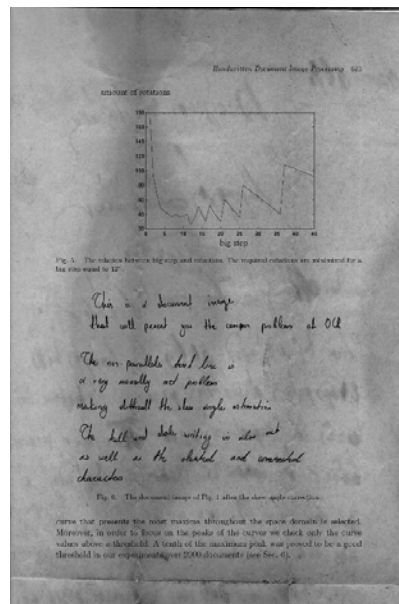 Handwritten Document Image Processing 625
amount of rotations
180
160
140
120
100
80
60
40
20
0 5 10 15 20 25 30 35 40 45
big step
Fig. 5. The relation between big step and rotations. The required rotations are minimized for a
big step equal to 12°.
This is a document image
that will present you the common problems of OCR
The non parallel line is
a very usually problem
making difficult the skew angle estimation
The and writing is also
as well as the slanted and connected
characters
Fig. 6. The document image of Fig. 1 after the skew angle correction.
curve that presents the most maxima throughout the space domain is selected.
Moreover, in order to focus on the peaks of the curves we check only the curve
values above a threshold. A tenth of the maximum peak was proved to be a good
threshold in our experiments over 2000 documents (see Sec. 6).